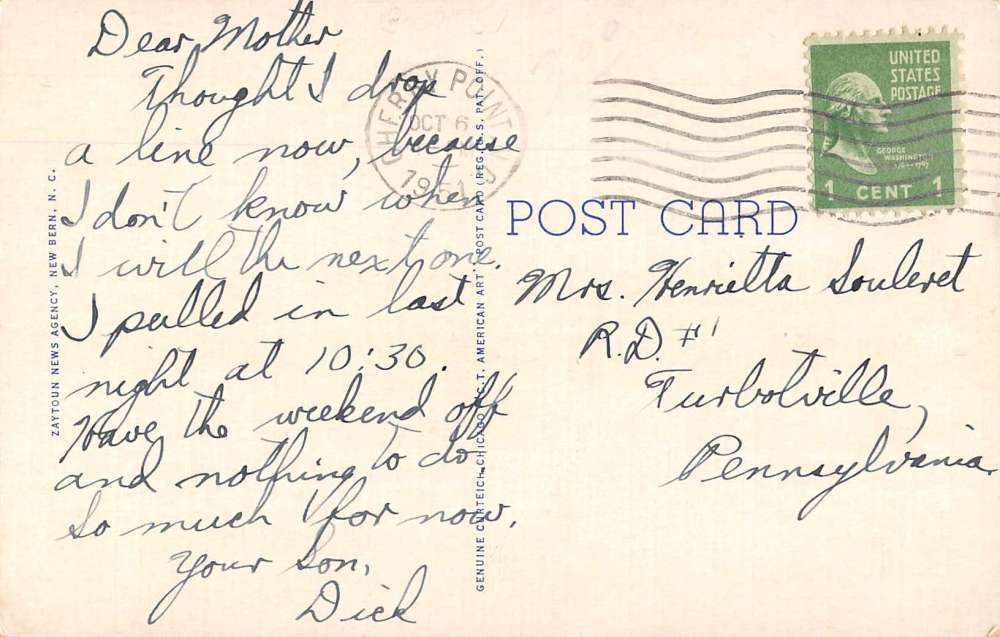 Dear Mother
Thought I drop
a line now, because
I don't know when
I will the next one.
I pulled in last
night at 10:30.
Have the weekend off
and nothing to do
So much for now.
Your Son,
Dick
ZAYTOUN NEWS AGENCY, NEW BERN, N. C.
GENUINE CURTEICH-CHICAGO "C.T. AMERICAN ART" POST CARD (REG. U.S. PAT. OFF.)
CHERRY POINT
OCT 6
1951
UNITED
STATES
POSTAGE
GEORGE
WASHINGTON
1 CENT 1
POST CARD
Mrs. Henrietta Souleret
R.D. #1
Turbotville,
Pennsylvania